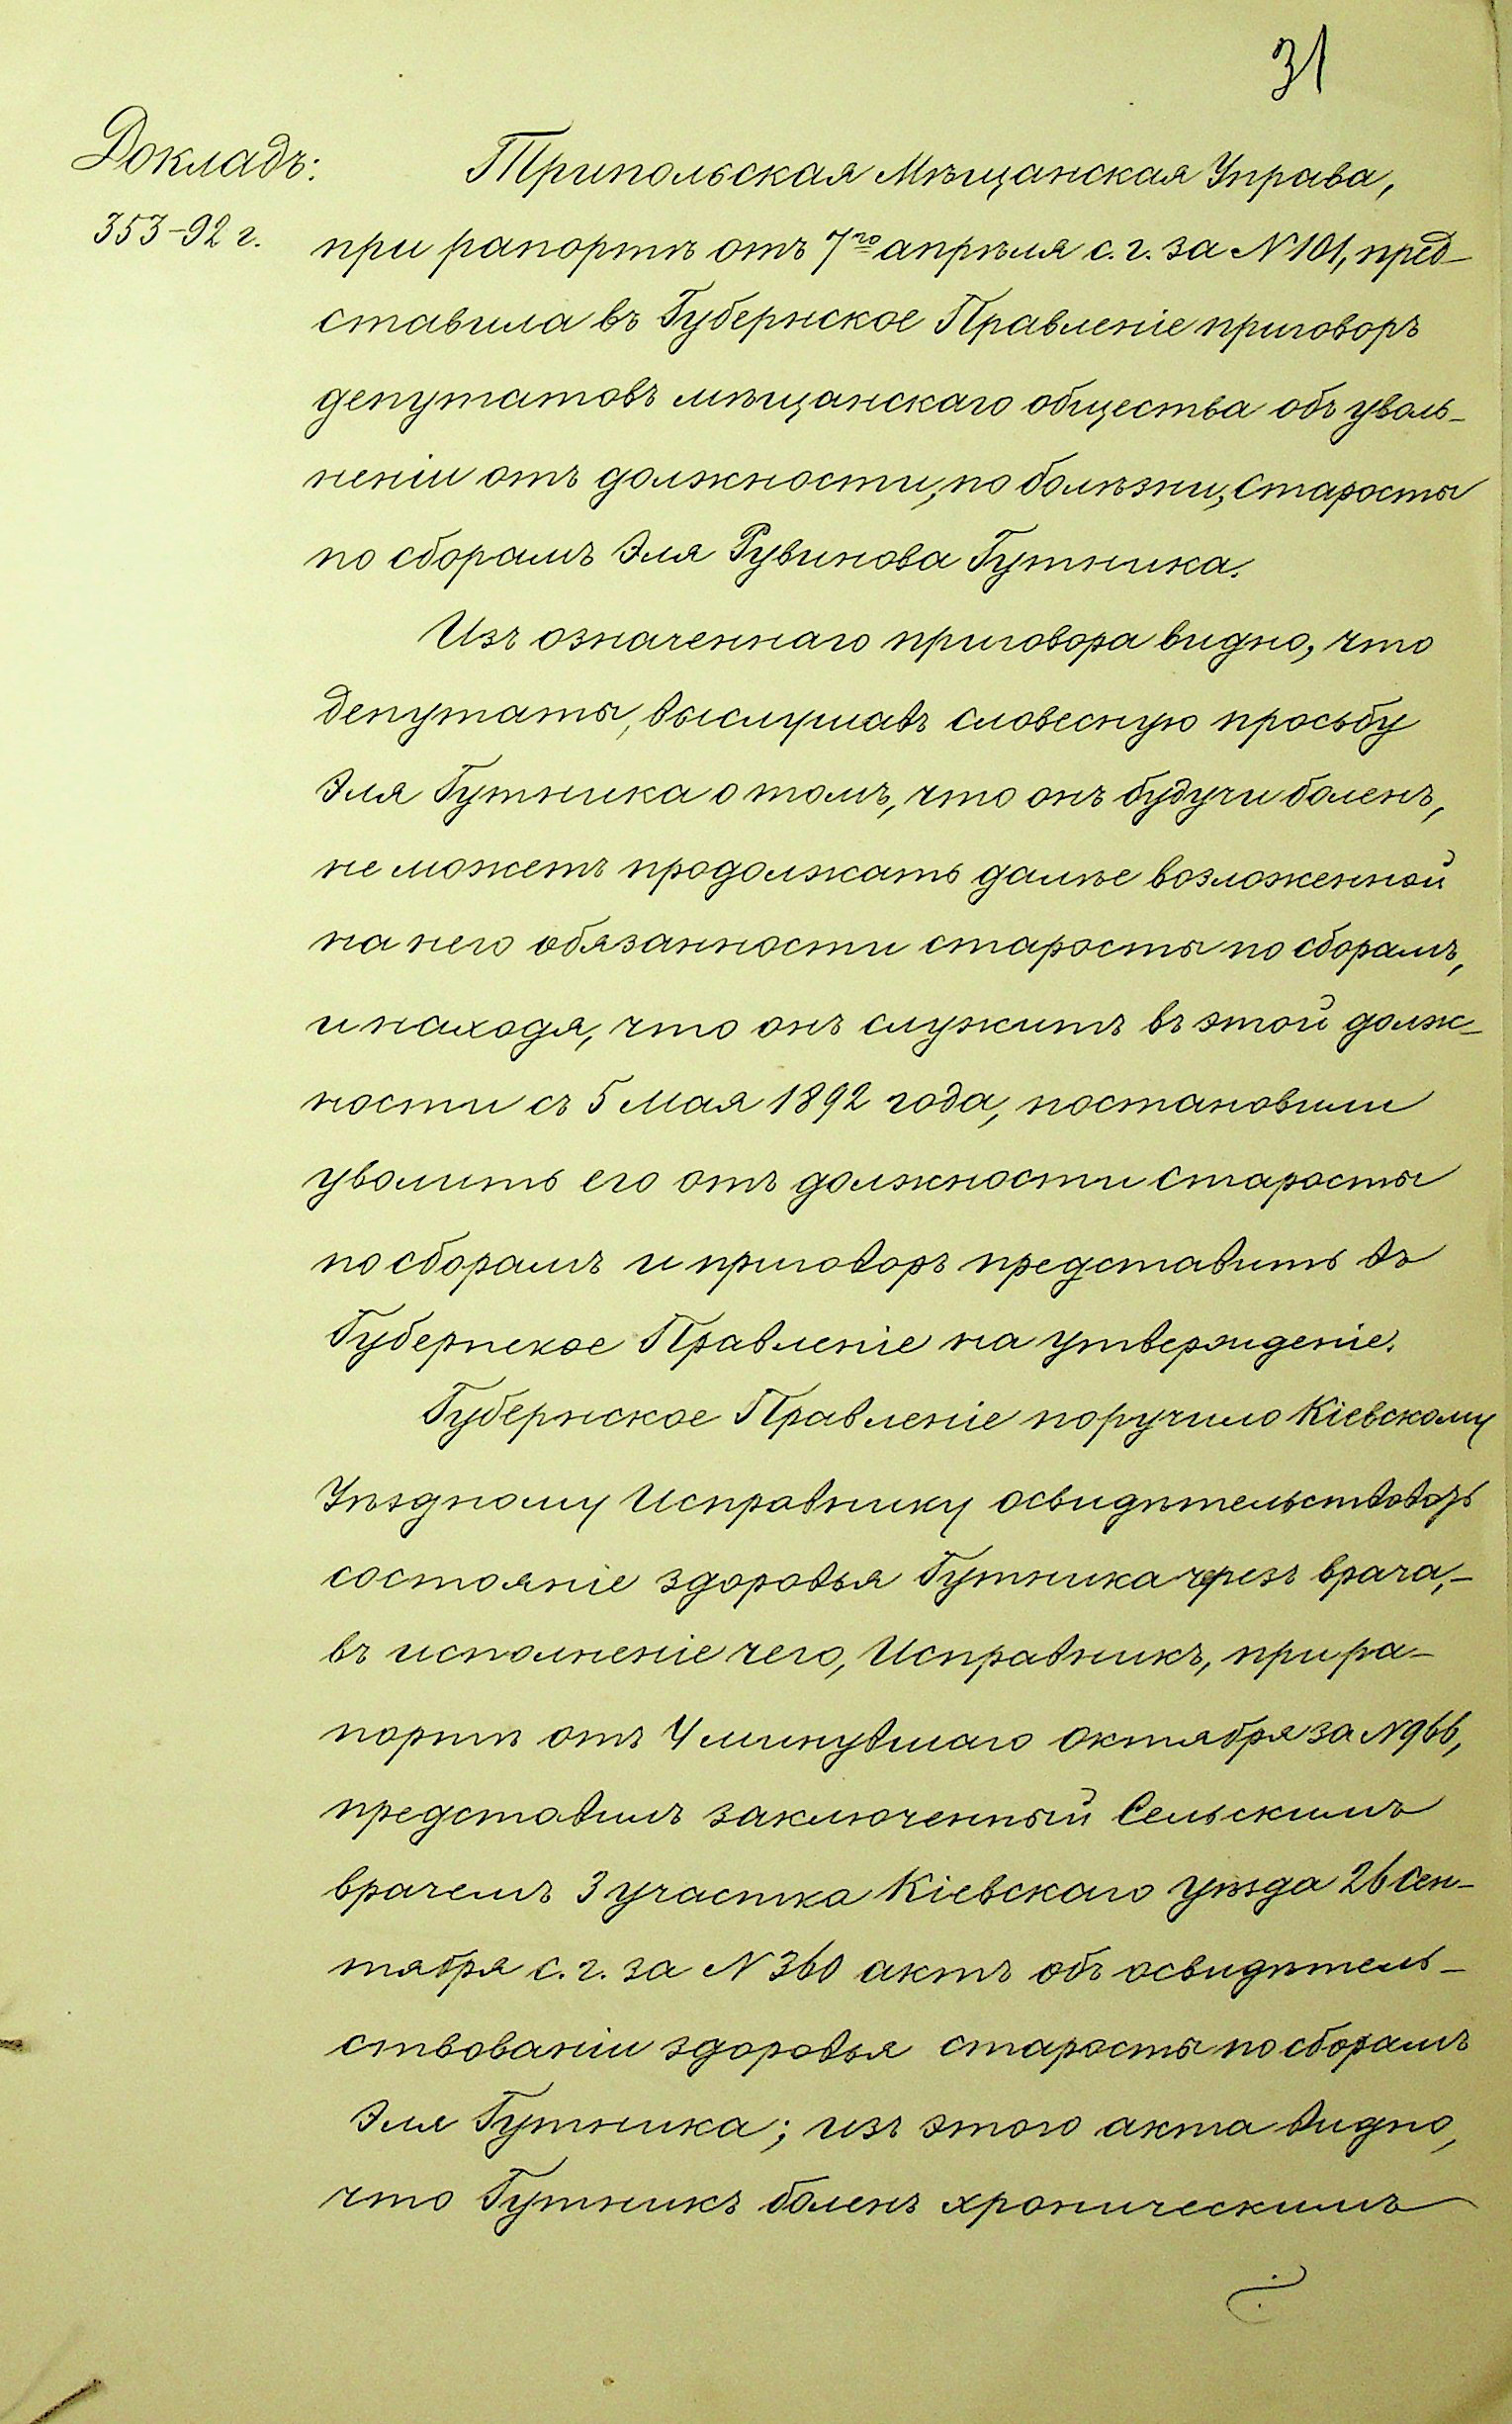 31
Докладъ:
353-92 г.
Трипольская Мѣщанская Управа,
при рапортѣ отъ 7го апрѣля с. г. за № 101, пред-
ставила въ Губернское Правленіе приговоръ
депутатовъ мѣщанскаго общества объ уволь-
неніи отъ должности, по болѣзни, старосты
по сборамъ Эля Рувинова Гутника.
Изъ означеннаго приговора видно, что
депутаты, выслушавъ словесную просьбу
Эля Гутника о томъ, что онъ будучи боленъ,
не можетъ продолжать далѣе возложенной
на него обязанности старосты по сборамъ,
и находя, что онъ служитъ въ этой долж-
ности съ 5 Мая 1892 года, постановили
уволить его отъ должности старосты
по сборамъ и приговоръ представить въ
Губернское Правленіе на утвержденіе.
Губернское Правленіе поручило Кіевскому
Уѣздному Исправнику освидѣтельствовать
состояніе здоровья Гутника черезъ врача,-
въ исполненіе чего, Исправникъ, при ра-
портѣ отъ 4 минувшаго октября за № 966,
представилъ заключенный Сельскимъ
врачемъ 3 участка Кіевскаго уѣзда 26 Сен-
тября с. г. за № 360 актъ объ освидѣтель-
ствованіи здоровья старосты по сборамъ
Эля Гутника; изъ этого акта видно,
что Гутникъ боленъ хроническимъ